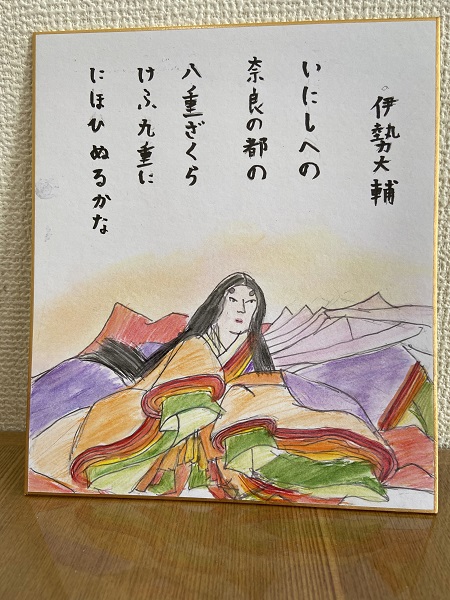 伊勢大輔
いにしへの
奈良の都の
八重ざくら
けふ九重に
にほひぬるかな